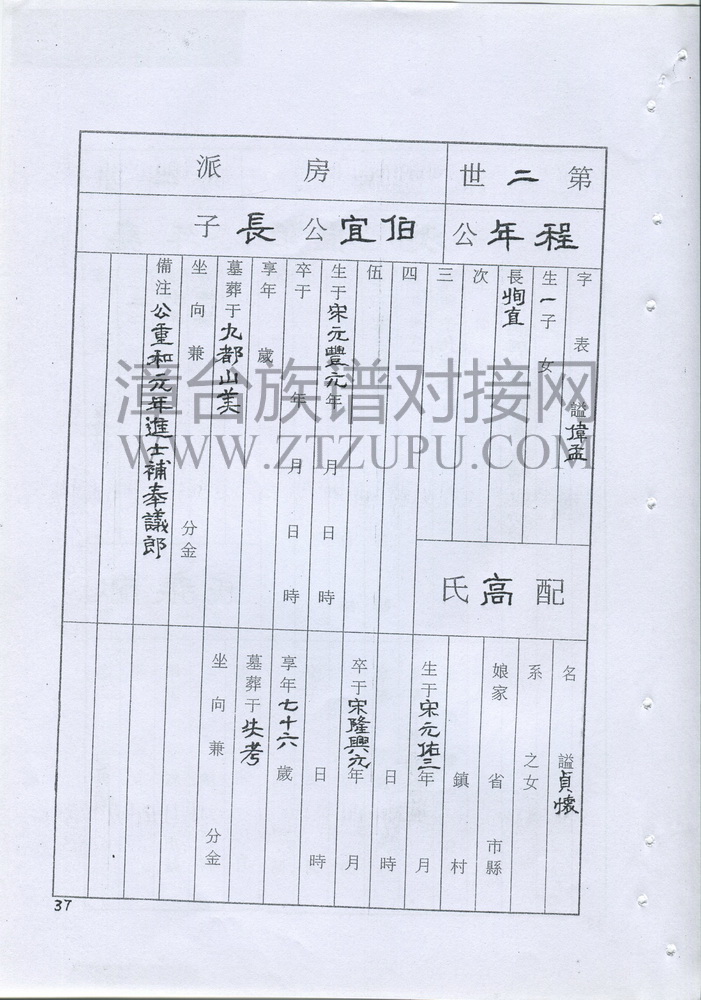 第二世
房派
程年公
伯宜公長子
字表 諡偉孟
生一子 女
長恂直
次
三
四
伍
生于宋元豐元年 月 日 時
卒于 年 月 日 時
享年 歲
墓葬于九都山美
坐 向 兼 分金
備注公重和元年進士補奉議郎
配高氏
名 諡貞懷
系 之女
娘家 省 市縣
鎮 村
生于宋元佑三年 月
日 時
卒于宋隆興元年 月
日 時
享年七十六歲
墓葬于失考
坐 向 兼 分金
37
漳台族谱对接网
WWW.ZTZUPU.COM